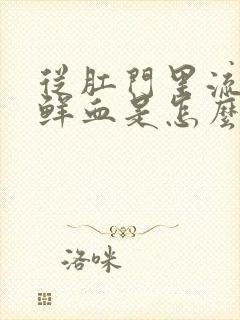 從肛門里流
鮮血是怎麼
洛咪